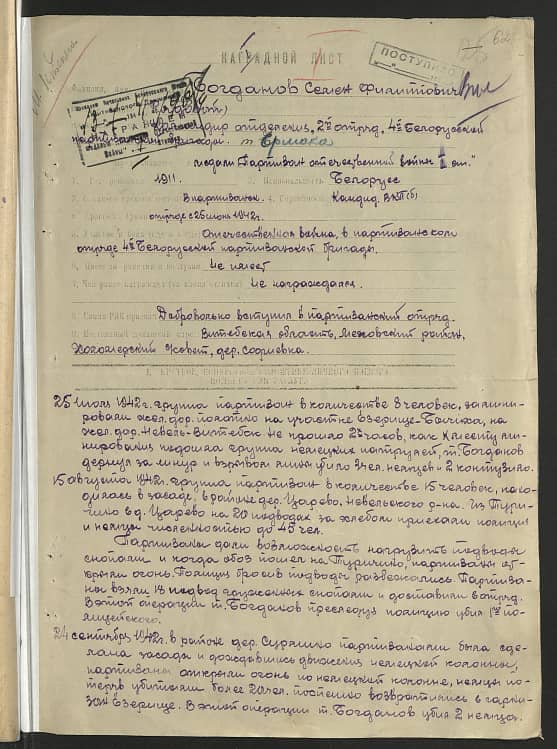 НАГРАДНОЙ ЛИСТ
ПОСТУПИЛО
Богданов Семен Филиппович
Рядовой,
командир отделения, 2го отряд, 4й Белорусской
партизанской бригады.
медали "Партизан отечественной войны I ст."
1911. Белорусс
В партизанах Кандид. ВКП(б)
отряде с 25 июнь 1942г.
Отечественная война, в партизанском
отряде 4й Белорусской партизанской бригады.
Не имеет
Не награждался.
Добровольно вступил в партизанский отряд.
Витебская область, Меховский район,
совет, дер.
25 июля 1942 г. группа партизан в количестве 8 человек, замини-
ровали жел. дор. полотно на участке Езерище-
жел. дор. Невель-Витебск. Не прошло 2х часов, как к месту ми-
нирования подошла группа немецких патрулей, т. Богданов
дернул за шнур и взрывом мины было немцев и 2 контузило.
15 августа 1942г. группа партизан в количестве 15 человек, нахо-
дилась в засаде, в районе дер. Царево, Невельского р-на. Из Тури-
чино в д. Царево на 20 подводах за хлебом приехали полиция
и немцы численностью до 45 чел.
Партизаны дали возможность нагрузить подводы
снопами и когда обоз пошел на Туричино, партизаны от-
крыли огонь. Полиция бросив подводы разбежались. Партиза-
ны взяли 18 подвод нагруженных снопами и доставили в отряд.
В этой операции т. Богданов преследуя полицию убил 1го по-
лицейского.
24 сентября 1942г. в районе дер. партизанами была сде-
лана засада и дождавшись движения немецкой колонны,
партизаны открыли огонь по немецкой колонне, немцы по-
теряв убитыми более 20 чел. поспешно возвратились в гарни-
зон Езерище. В этой операции т. Богданов убил 2 немцев.